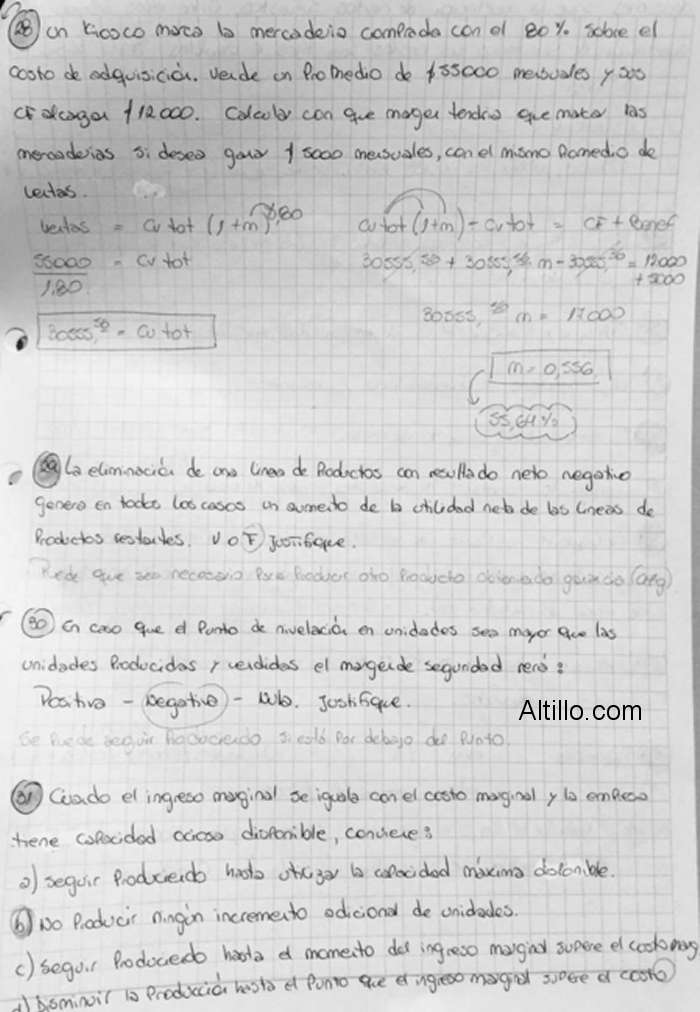 28) Un kiosco marca la mercadería comprada con el 80% sobre el
costo de adquisición. Vende un Promedio de $55000 mensuales y sus
CF alcanzan $12000. Calcular con que margen tendría que marcar las
mercaderías si desea ganar $5000 mensuales, con el mismo Promedio de
ventas.
Ventas = CV tot (1+m) 0,80
55000 = CV tot
1,80
30555,50 = CV tot
CV tot (1+m) - CV tot = CF + Benef
30555,50 + 30555,50 m - 30555,50 = 12000
+ 5000
30555,50 m = 17000
m = 0,556
55,64%
29) La eliminación de una línea de Productos con resultado neto negativo
genera en todos los casos un aumento de la utilidad neta de las líneas de
Productos restantes. V o F Justifique.
Puede que sea necesario Para Producir otro Producto
30) En caso que el Punto de nivelación en unidades sea mayor que las
unidades Producidas y vendidas el margen de seguridad será:
Positivo - Negativo - Nulo. Justifique.
Altillo.com
Se Puede seguir Produciendo si está Por debajo del Punto.
31) Cuando el ingreso marginal se iguala con el costo marginal y la empresa
tiene capacidad ociosa disponible, conviene:
a) Seguir Produciendo hasta utilizar la capacidad máxima disponible.
b) No Producir ningún incremento adicional de unidades.
c) Seguir Produciendo hasta el momento del ingreso marginal supere el costo marg
d) Disminuir la Producción hasta el Punto que el ingreso marginal supere el costo